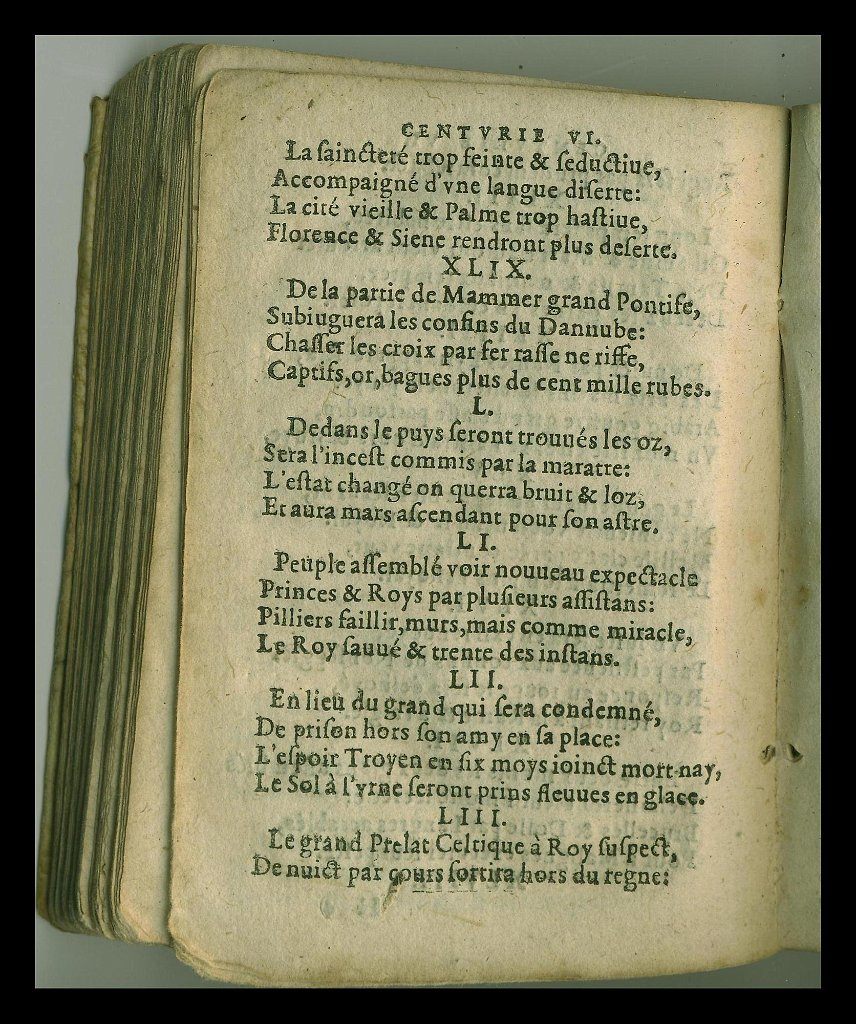 CENTVRIE VI.
La ſaincteté trop feinte & ſeductiue,
Accompaigné d'vne langue diſerte:
La cité vieille & Palme trop haſtiue,
Florence & Siene rendront plus deſerte.
XLIX.
De la partie de Mammer grand Pontife,
Subiuguera les confins du Dannube:
Chaſſer les croix par fer raffe ne riffe,
Captifs,or,bagues plus de cent mille rubes.
L.
Dedans le puys ſeront trouués les oz,
Sera l'inceſt commis par la maratre:
L'eſtat changé on querra bruit & loz,
Et aura mars aſcendant pour ſon aſtre.
LI.
Peuple aſſemblé voir nouueau expectacle
Princes & Roys par pluſieurs aſſiſtans:
Pilliers faillir,murs,mais comme miracle,
Le Roy ſauué & trente des inſtans.
LII.
En lieu du grand qui ſera condemné,
De priſon hors ſon amy en ſa place:
L'eſpoir Troyen en ſix moys ioinct mort nay,
Le Sol à l'vrne ſeront prins fleuues en glace.
LIII.
Le grand Prelat Celtique à Roy ſuſpect,
De nuict par cours ſortira hors du regne: